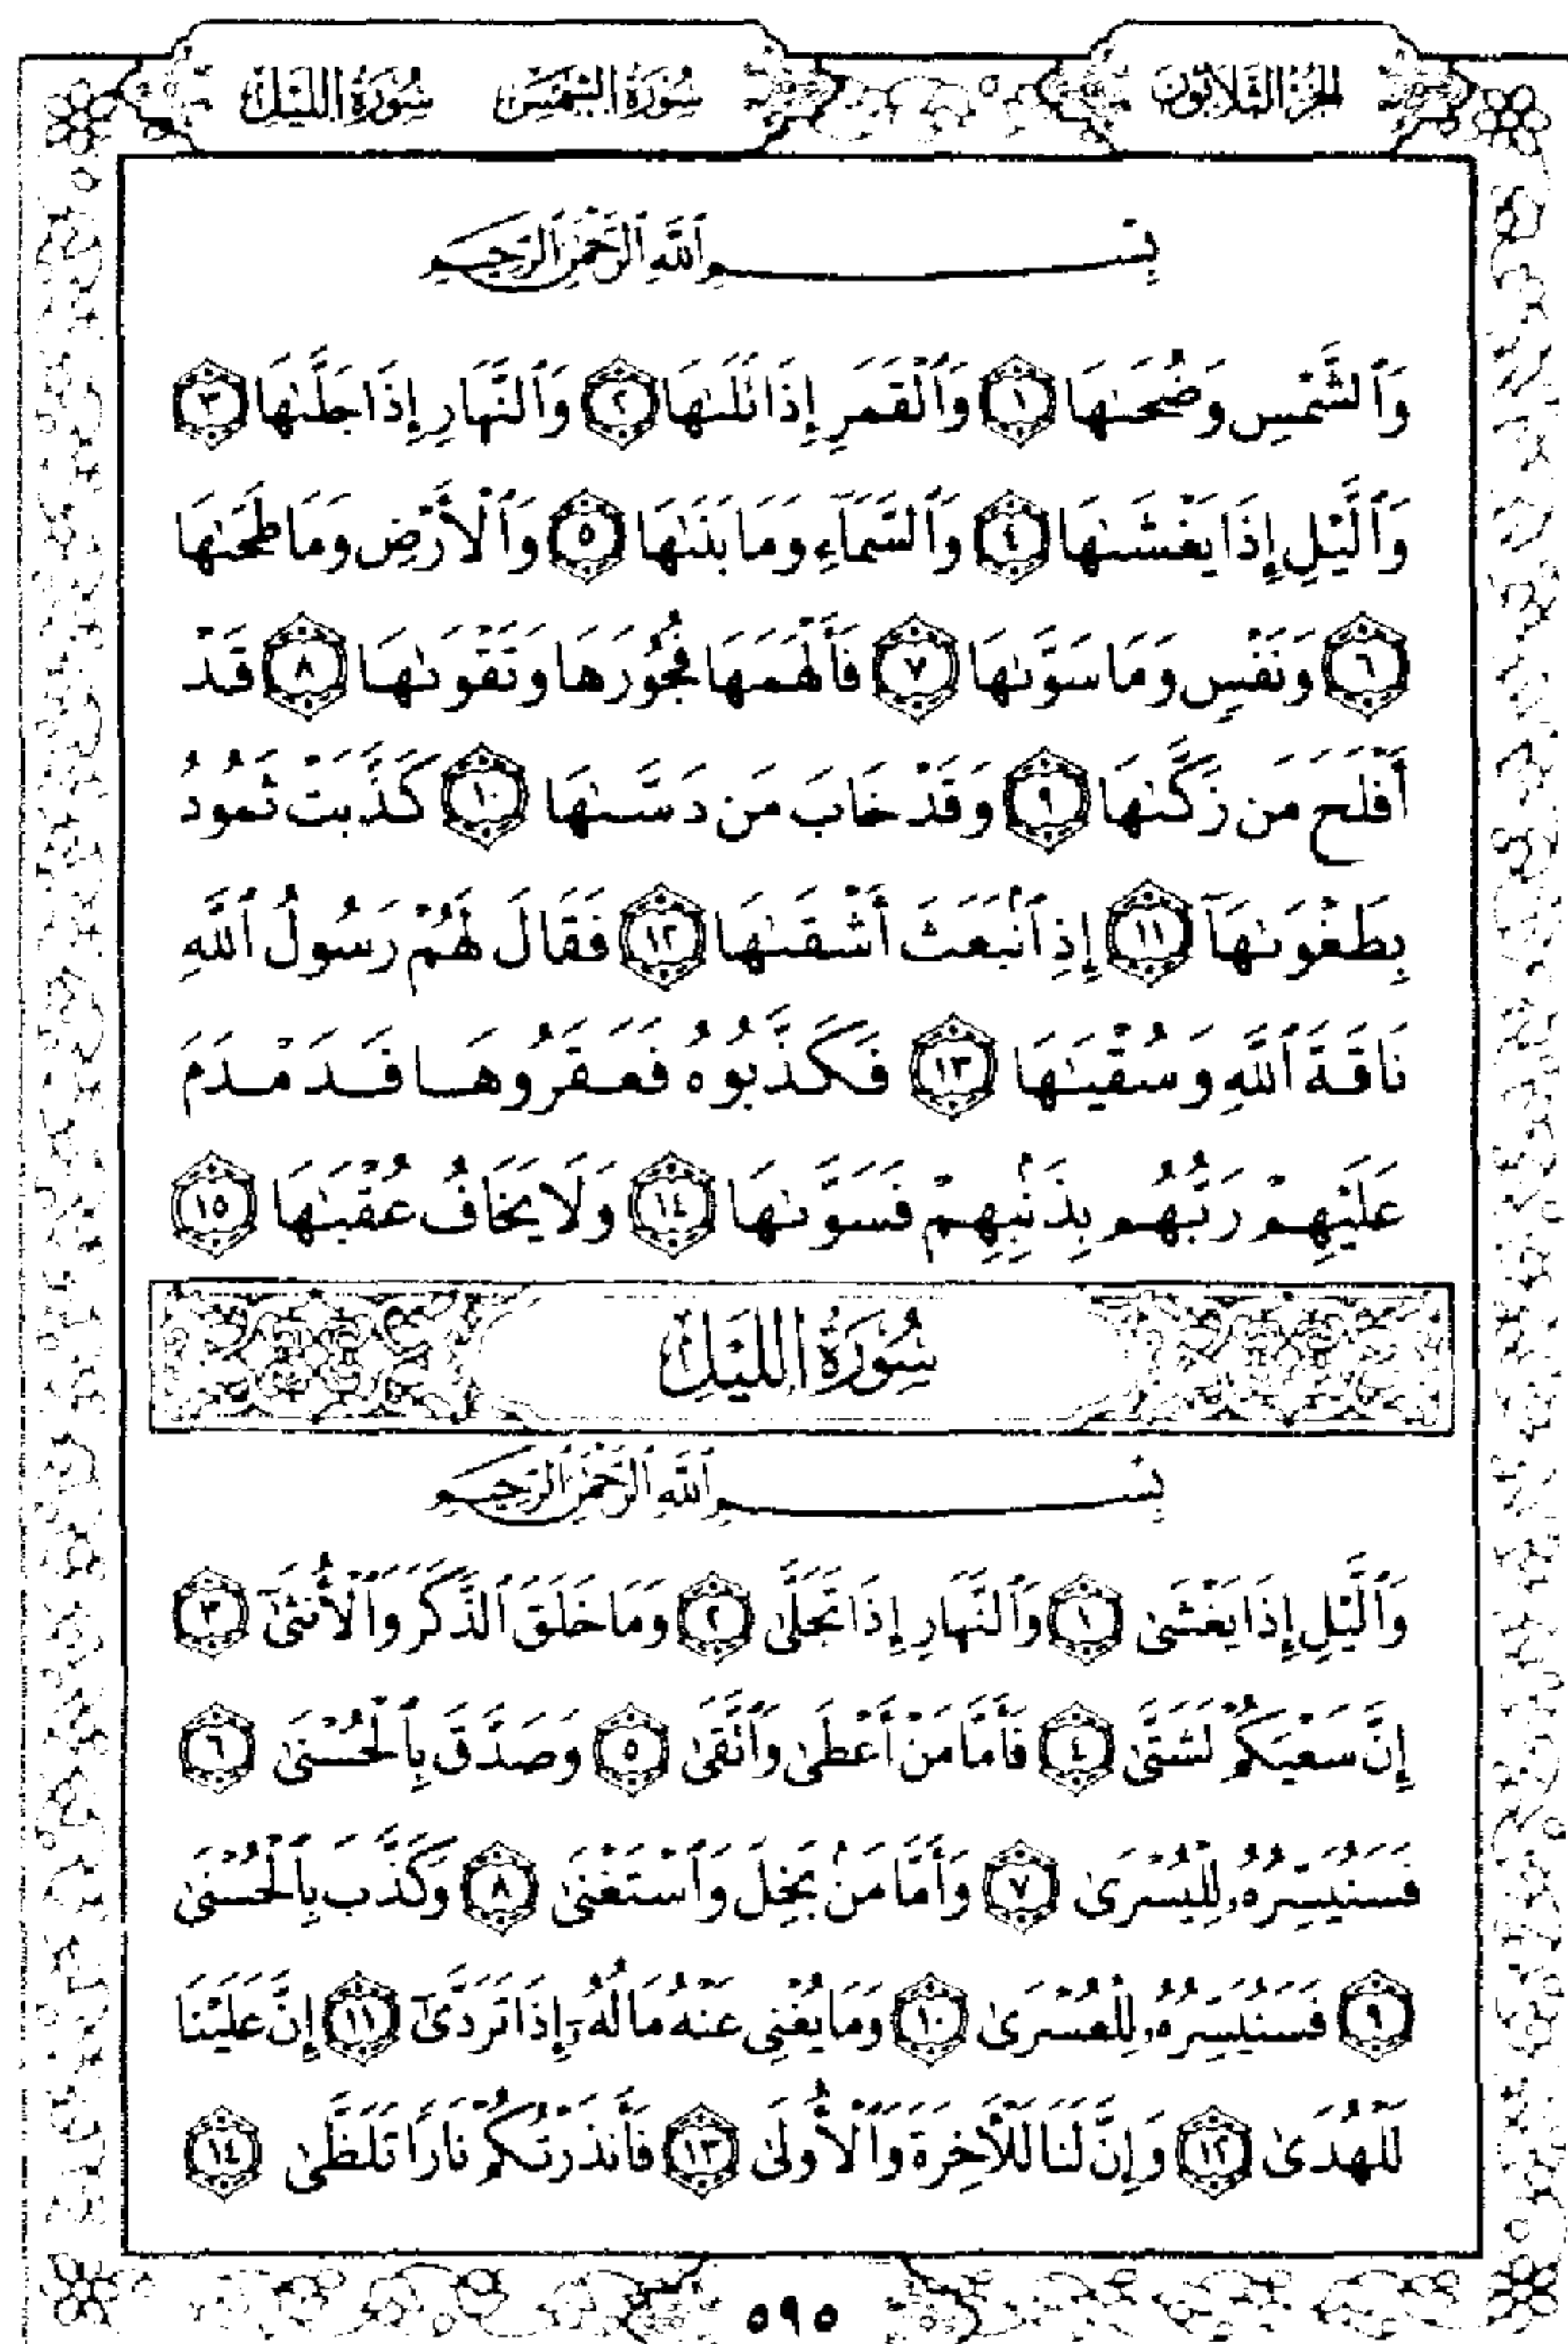 الجزء الثلاثون سورة الشمس سورة الليل
بِسْمِ ٱللَّهِ ٱلرَّحْمَٰنِ ٱلرَّحِيمِ
وَٱلشَّمْسِ وَضُحَىٰهَا ١ وَٱلْقَمَرِ إِذَا تَلَىٰهَا ٢ وَٱلنَّهَارِ إِذَا جَلَّىٰهَا ٣
وَٱلَّيْلِ إِذَا يَغْشَىٰهَا ٤ وَٱلسَّمَآءِ وَمَا بَنَىٰهَا ٥ وَٱلْأَرْضِ وَمَا طَحَىٰهَا
٦ وَنَفْسٍ وَمَا سَوَّىٰهَا ٧ فَأَلْهَمَهَا فُجُورَهَا وَتَقْوَىٰهَا ٨ قَدْ
أَفْلَحَ مَن زَكَّىٰهَا ٩ وَقَدْ خَابَ مَن دَسَّىٰهَا ١٠ كَذَّبَتْ ثَمُودُ
بِطَغْوَىٰهَآ ١١ إِذِ ٱنۢبَعَثَ أَشْقَىٰهَا ١٢ فَقَالَ لَهُمْ رَسُولُ ٱللَّهِ
نَاقَةَ ٱللَّهِ وَسُقْيَٰهَا ١٣ فَكَذَّبُوهُ فَعَقَرُوهَا فَدَمْدَمَ
عَلَيْهِمْ رَبُّهُم بِذَنۢبِهِمْ فَسَوَّىٰهَا ١٤ وَلَا يَخَافُ عُقْبَٰهَا ١٥
سُورَةُ اللَّيْلِ
بِسْمِ ٱللَّهِ ٱلرَّحْمَٰنِ ٱلرَّحِيمِ
وَٱلَّيْلِ إِذَا يَغْشَىٰ ١ وَٱلنَّهَارِ إِذَا تَجَلَّىٰ ٢ وَمَا خَلَقَ ٱلذَّكَرَ وَٱلْأُنثَىٰٓ ٣
إِنَّ سَعْيَكُمْ لَشَتَّىٰ ٤ فَأَمَّا مَنْ أَعْطَىٰ وَٱتَّقَىٰ ٥ وَصَدَّقَ بِٱلْحُسْنَىٰ ٦
فَسَنُيَسِّرُهُۥ لِلْيُسْرَىٰ ٧ وَأَمَّا مَنۢ بَخِلَ وَٱسْتَغْنَىٰ ٨ وَكَذَّبَ بِٱلْحُسْنَىٰ
٩ فَسَنُيَسِّرُهُۥ لِلْعُسْرَىٰ ١٠ وَمَا يُغْنِى عَنْهُ مَالُهُۥٓ إِذَا تَرَدَّىٰٓ ١١ إِنَّ عَلَيْنَا
لَلْهُدَىٰ ١٢ وَإِنَّ لَنَا لَلْءَاخِرَةَ وَٱلْأُولَىٰ ١٣ فَأَنذَرْتُكُمْ نَارًا تَلَظَّىٰ ١٤
٥٩٥